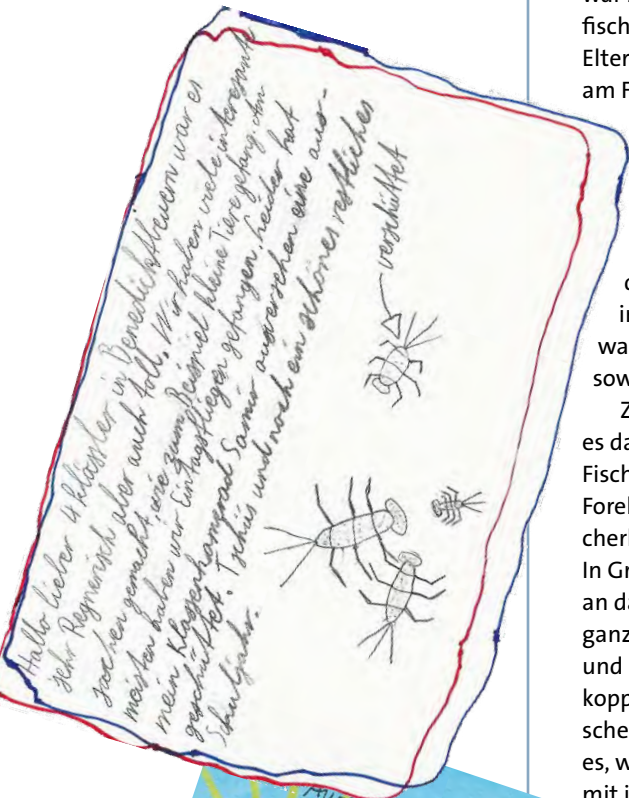 Hallo lieber 4 Klässler in Benedicktbeuern war es
sehr Regnerisch aber auch toll. Wir haben viele interesante
sachen gemacht wie zum Beispiel kleine Tiere gefang. Am
meisten haben wir Eintagsflieger gefangen, leider hat
mein Klassenkamerad Samir ausversehen eine aus-
geschüttet. Tschüs und noch ein schönes restliches
Schuljahr.
verschüttet
fisch
Elter
am F
wa
sow
Z
es da
Fisch
Forel
In Gr
an da
ganz
und
kopp
sche
es, w
mit i